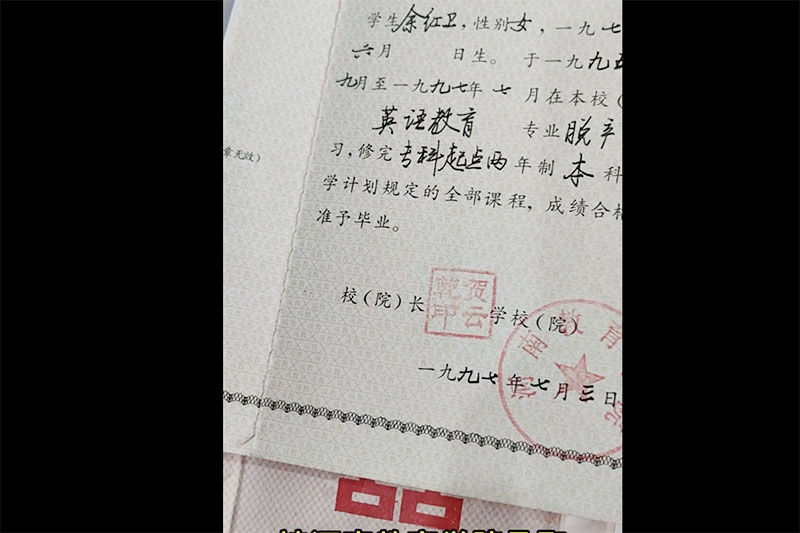 学生余红卫，性别女，一九七
六月　　日生。于一九九五
九月至一九九七年七月在本校（
英语教育　专业脱产
章无效）
习，修完专科起点两年制本科
学计划规定的全部课程，成绩合格
准予毕业。
校（院）长
贺云 印
学校（院）
南教育
一九九七年七月三日